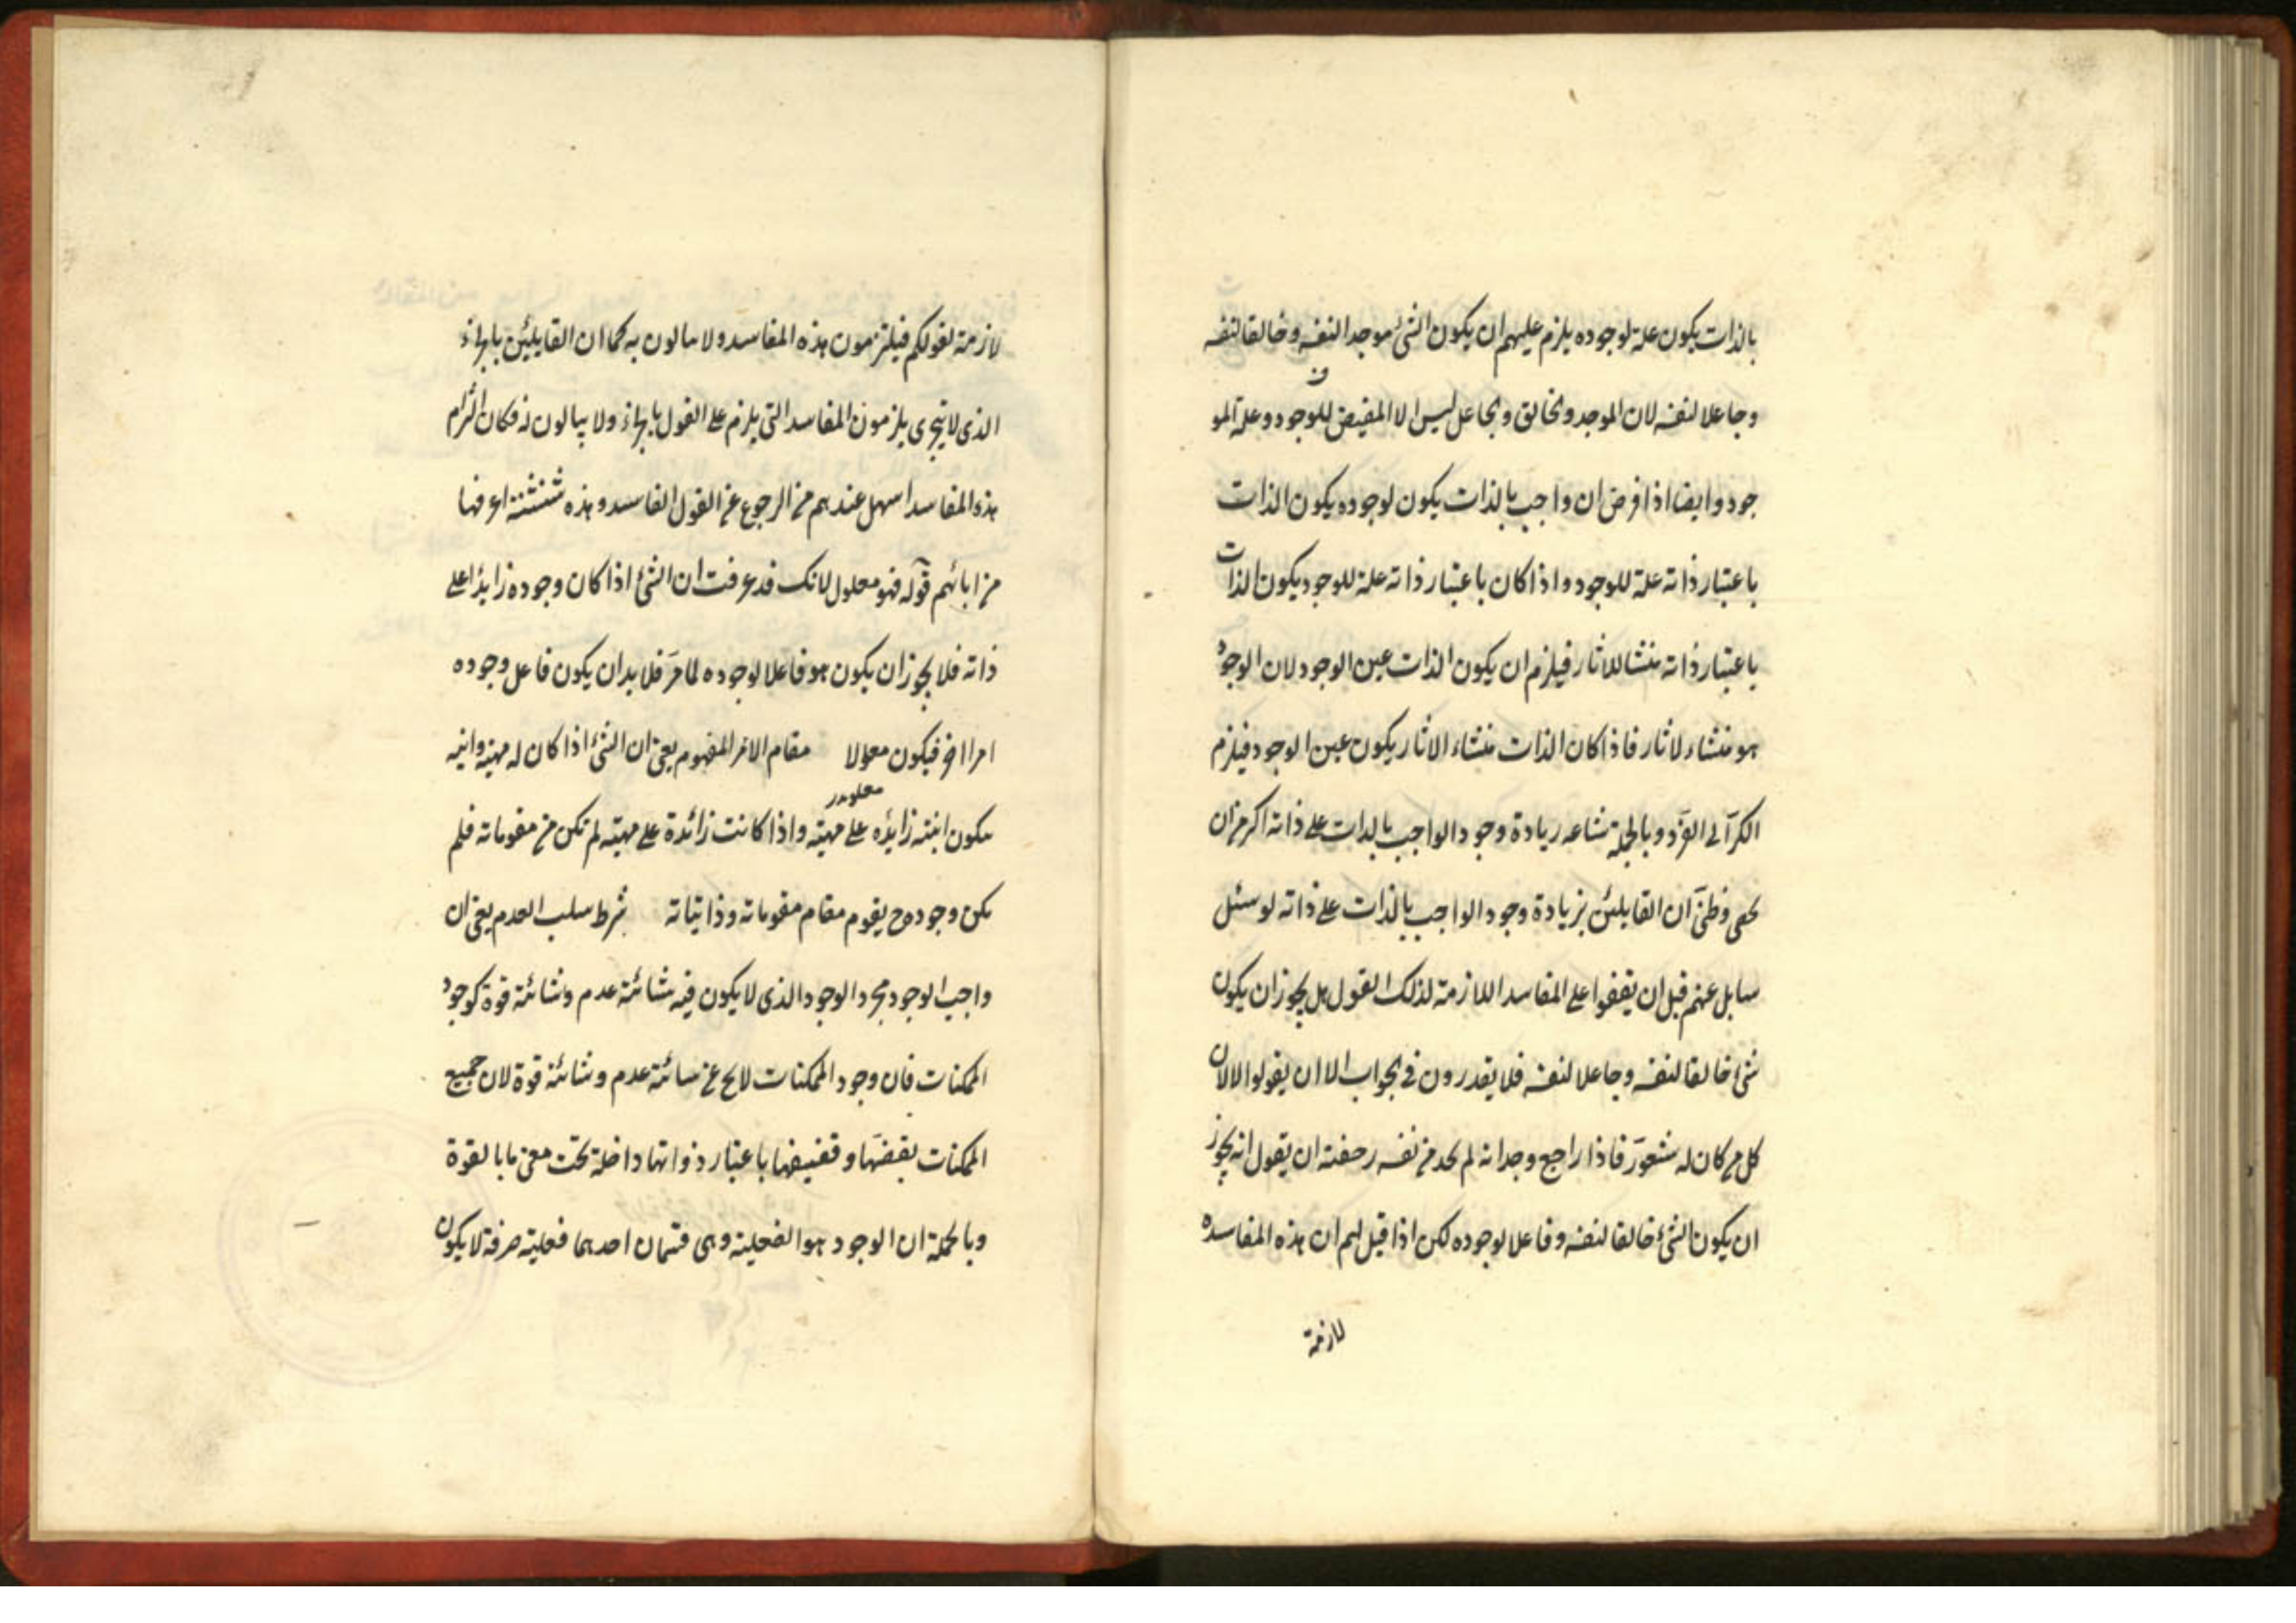 بالذات يكون علة لوجوده يلزم عليهم ان يكون الشئ موجدا لنفسه وخالقا لنفسه
وجاعلا لنفسه لان الموجد والخالق والجاعل ليس الا المفيض للوجود وعلة المو
جود وايضا اذا فرض ان واجب بالذات يكون لوجوده يكون الذات
باعتبار ذاته علة للوجود واذا كان باعتبار ذاته علة للوجود يكون الذات
باعتبار ذاته منشا للاثار فيلزم ان يكون الذات عين الوجود لان الوجود
هو منشاء لاثار فاذا كان الذات منشاء الاثار يكون عين الوجود فيلزم
الكر الى الفر وبالجملة شناعه زيادة وجود الواجب بالذات على ذاته اكثر من ان
تحصى وظنى ان القايلين بزيادة وجود الواجب بالذات على ذاته لو سئل
سايل عنهم قبل ان يقفوا على المفاسد اللازمة لذلك القول هل يجوز ان يكون
شئ خالقا لنفسه وجاعلا لنفسه فلا يقدرون فى الجواب الا ان يقولوا لا لان
كل من كان له شعور فاذا راجع وجدانه لم يجد من نفسه رخصته ان يقول انه يجوز
ان يكون الشئ خالقا لنفسه وفاعلا لوجوده لكن اذا قيل لهم ان هذه المفاسده
لازمة
لازمة لقولكم فيلتزمون هذه المفاسد ولا يبالون به كما ان القايلين بالجزء
الذى لا يتجرى يلزمون المفاسد التى يلزم على القول بالجزء ولا يبالون فكان التزام
هذه المفاسد اسهل عندهم من الرجوع عن القول الفاسد وهذه شنشنة اعرفها
من ابائهم قوله فهو معلول لانك قد عرفت ان الشئ اذا كان وجوده زايدا على
ذاته فلا يجوز ان يكون هو فاعلا لوجوده لما مر فلا بد ان يكون فاعل وجوده
امرا اخر فيكون معولا مقام الامر المفهوم يعنى ان الشئ اذا كان له مهية وانيه
يكون انيته زايده على مهيته واذا كانت زائدة على مهيته لم تكن من مقوماته فلم
يكن وجوده ح يقوم مقام مقوماته وذاتياته شرط سلب العدم يعنى ان
واجب الوجود مجرد الوجود الذى لا يكون فيه شائبة عدم وشائبة قوة كوجود
الممكنات فان وجود الممكنات لا يخ عن شائبة عدم وشائبة قوة لان جميع
الممكنات بقضها وقضيضها باعتبار ذواتها داخلة تحت معنى ما بالقوة
وبالجملة ان الوجود هو الفعلية وهى قسمان احدهما فعلية صرفة لا يكون